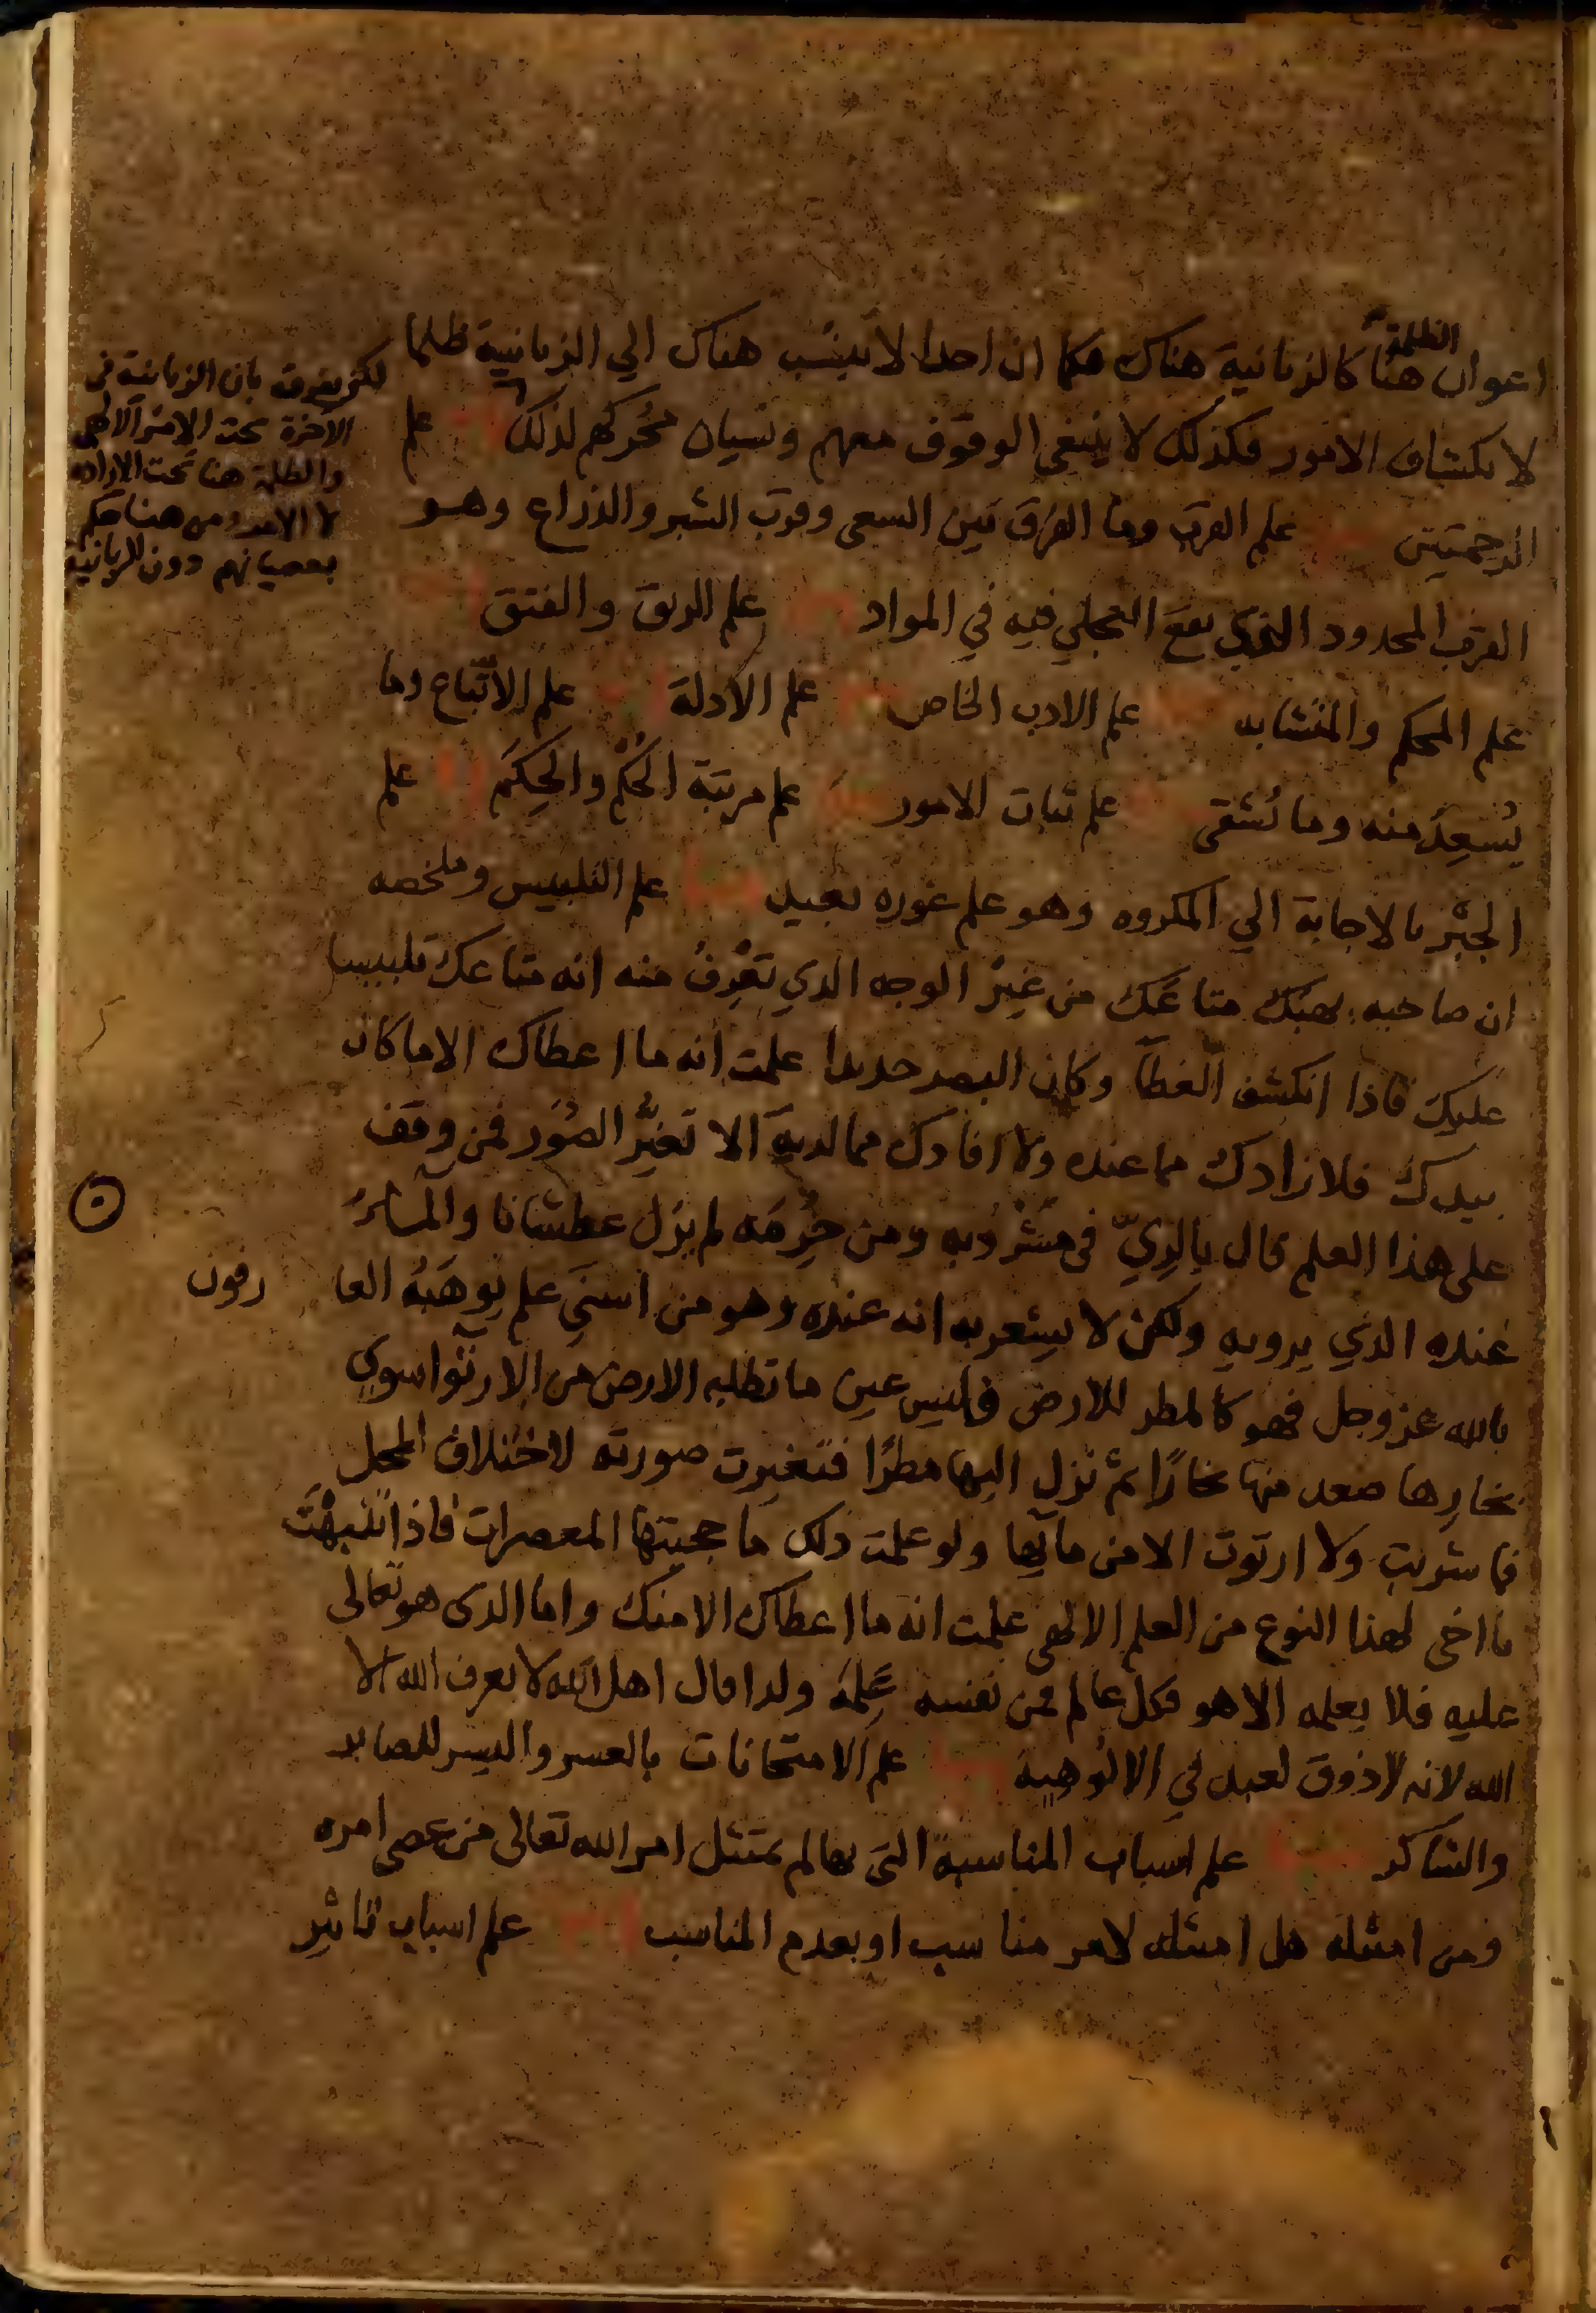 اعوان الظلمة هنا كالزبانية هناك فكما ان احدا لا ينسب هناك الي الزبانية ظلما
لانكشاف الامور فكذلك لا ينبغي الوقوف معهم ونسيان محركهم لذلك علم
الرحمتين علم القرب وما الفرق بين السعى وقرب الشبر والذراع وهو
القرب المحدود الذي يقع التجلي فيه في المواد علم الرتق والفتق
علم المحكم والمتشابه علم الادب الخاص علم الادلة علم الاتباع وما
يسعد منه وما يشقى علم ثبات الامور علم مرتبة الحكم والحكم علم
الجبر بالاجابة الي المكروه وهو علم غوره بعيد علم التلبيس وملخصه
ان صاحبه يهبك متاعك من غير الوجه الذي تعرف منه انه متاعك تلبيسا
عليك فاذا انكشف الغطآ وكان البصر حديدا علمت انه ما اعطاك الا ما كان
بيدك فلا زادك مما عنده ولا افادك مما لديه الا تغير الصور فمن وقف
على هذا العلم قال بالري في مشروبه ومن حرمه لم يزل عطشانا والمآء
عنده الذي يرويه ولكن لا يشعر به انه عنده وهو من اسني علم يوهبه العا رفون
بالله عز وجل فهو كالمطر للارض فليس عين ما تطلبه الارض من الارتوآ سوي
بخارها صعد منها بخارا ثم نزل اليها مطرا فتغيرت صورته لاختلاف المحل
فما شربت ولا ارتوت الا من مآيها ولو علمت ذلك ما حجبتها المعصرات فاذا تنبهت
يا اخى لهذا النوع من العلم الالهي علمت انه ما اعطاك الا منك واما الذى هو تعالى
عليه فلا يعلمه الا هو فكل عالم فمن نفسه علمه ولذا قال اهل الله لا يعرف الله الا
الله لانه لا ذوق لعبد في الالوهية علم الامتحانات بالعسر واليسر للصابر
والشاكر علم اسباب المناسبة التي بها لم يمتثل امر الله تعالى من عصى امره
ومن امتثله هل امتثله لامر مناسب او بعدم المناسب علم اسباب تاثير
لكن يفرق بان الزبانية في
الآخرة تحت الامر الالهي
والظلمة هنا تحت الارادة
لا الامر ومن هنا حكم
بعصيانهم دون الزبانية